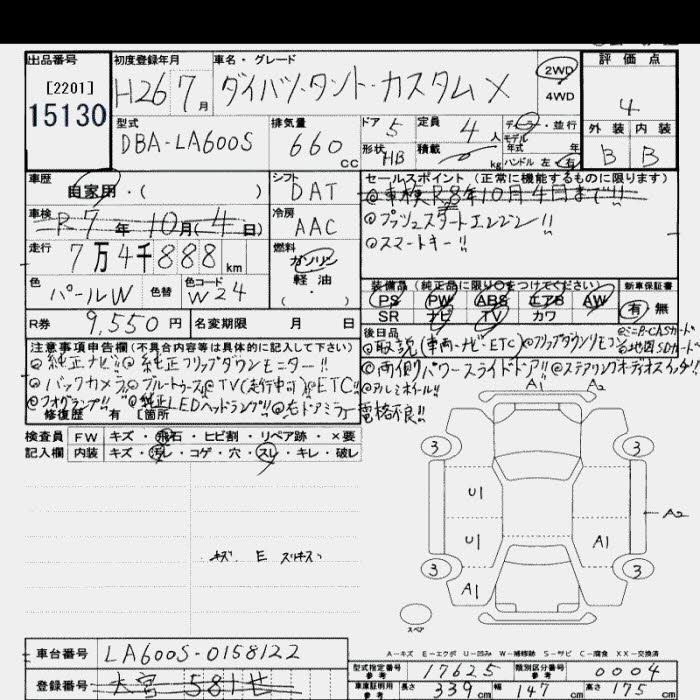 出品番号
[2201]
15130
初度登録年月
H26 7月
車名・グレード
ダイハツ・タント・カスタムX
2WD
4WD
評価点
4
外装 内装
B B
型式
DBA-LA600S
排気量
660cc
ドア 5
形状 HB
定員 4人
積載 kg
ディーラー・並行
モデル年式 年
ハンドル 左 右
車歴
自家用・( )
シフト
DAT
車検
R7年10月(4日)
冷房
AAC
走行
7万4千888km
燃料
ガソリン
軽油
( ・ )
色
パールW
色替
色コード
W24
セールスポイント (正常に機能するものに限ります)
◎車検R8年10月4日まで!!
◎プッシュスタートエンジン!!
◎スマートキー!!
装備品(純正品に限り○をつけてください)
PS PW ABS エアB AW
SR ナビ TV カワ
新車保証書
有 無
R券 9,550円
名変期限 月 日
後日品
◎取説(車両・ナビ・ETC)◎フリップダウンリモコン
◎ミニB-CASカード
◎地図SDカード
注意事項申告欄(不具合内容等は具体的に記入して下さい)
◎純正ナビ!!◎純正フリップダウンモニター!!
◎両側パワースライドドア!!◎ステアリングオーディオスイッチ!!
◎バックカメラ◎ブルートゥース◎TV(走行中可)◎ETC!!
◎アルミホイール!!
◎フォグランプ!!◎純正LEDヘッドランプ!!◎右ドアミラー電格不良!!
修復歴 有 [箇所
検査員 FW キズ・飛石・ヒビ割・リペア跡・×要
記入欄 内装 キズ・汚レ・コゲ・穴・スレ・キレ・破レ
キズ E スリキズ
A1 A2
3 3
U1
A2
U1 A1
3 3
A1
スペア
A-キズ E-エクボ U-凹み W-補修跡 S-サビ C-腐食 XX-交換済
車台番号 LA600S-0158122
登録番号 大宮 581せ
型式指定番号 参考 17625
類別区分番号 参考 0004
車庫証明用 参考 長さ 339cm 幅 147cm 高さ 175cm